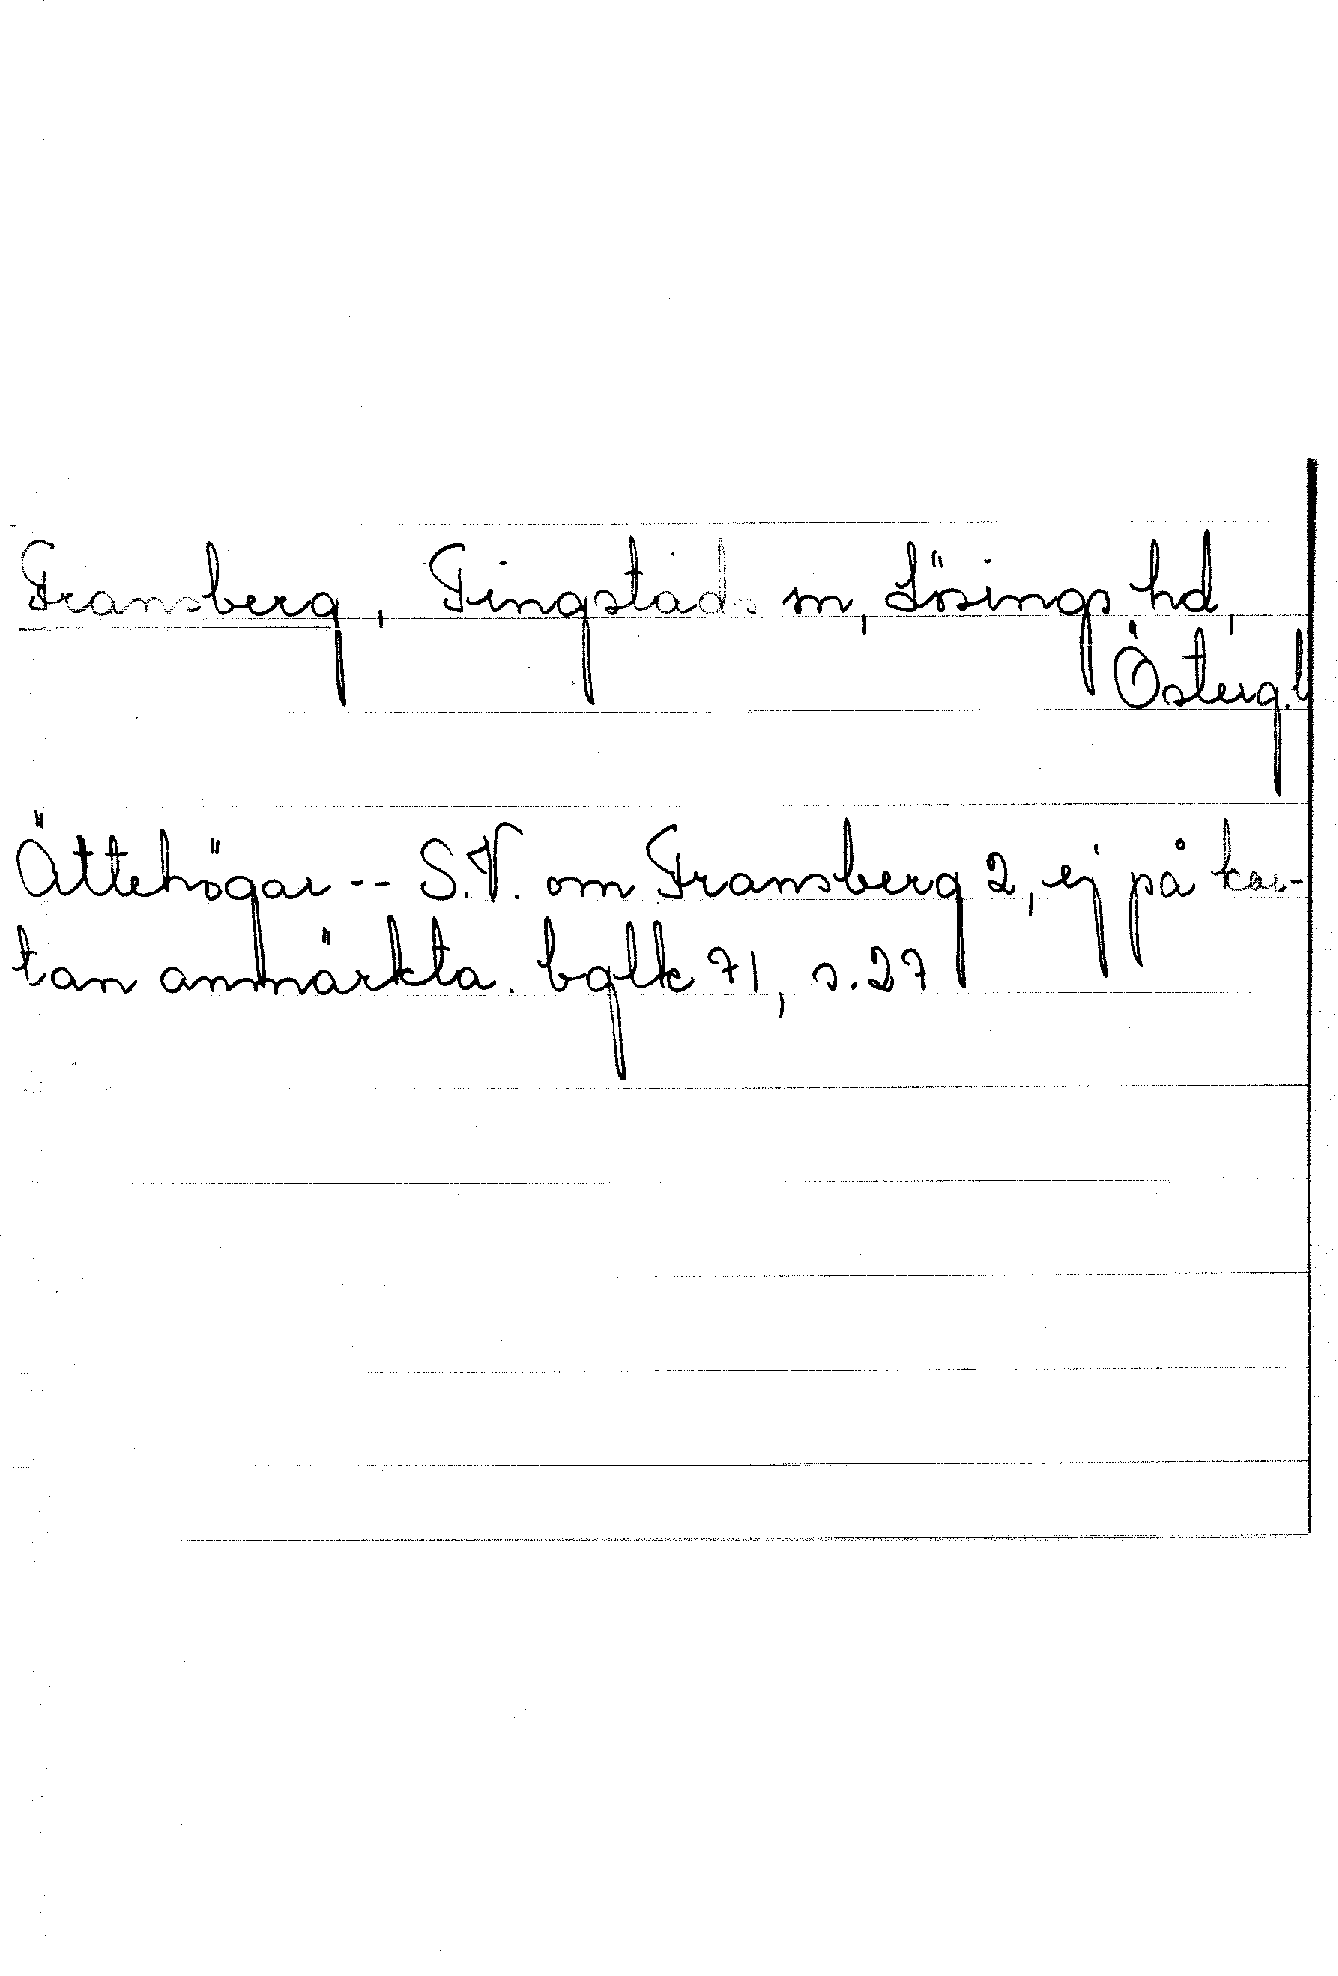 Fransberg, Fingstads sn, Lösings hd,
Österg.l
Ättehögar -- S.V. om Fransberg 2, ej på kar-
tan anmärkta. bglk 71, s. 27